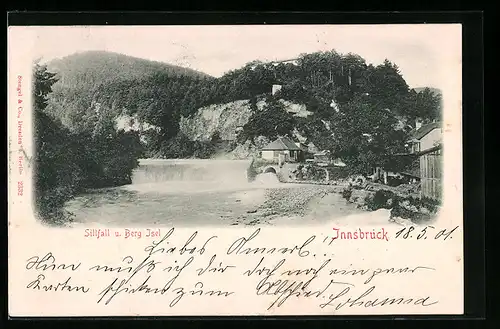 Stengel & Co., Dresden u. Berlin 2552
Sillfall u. Berg Isel
Innsbruck
18. 5. 01
Liebes
Nun muß ich dir doch noch ein paar
Karten schicken zum Abschied
Johanna